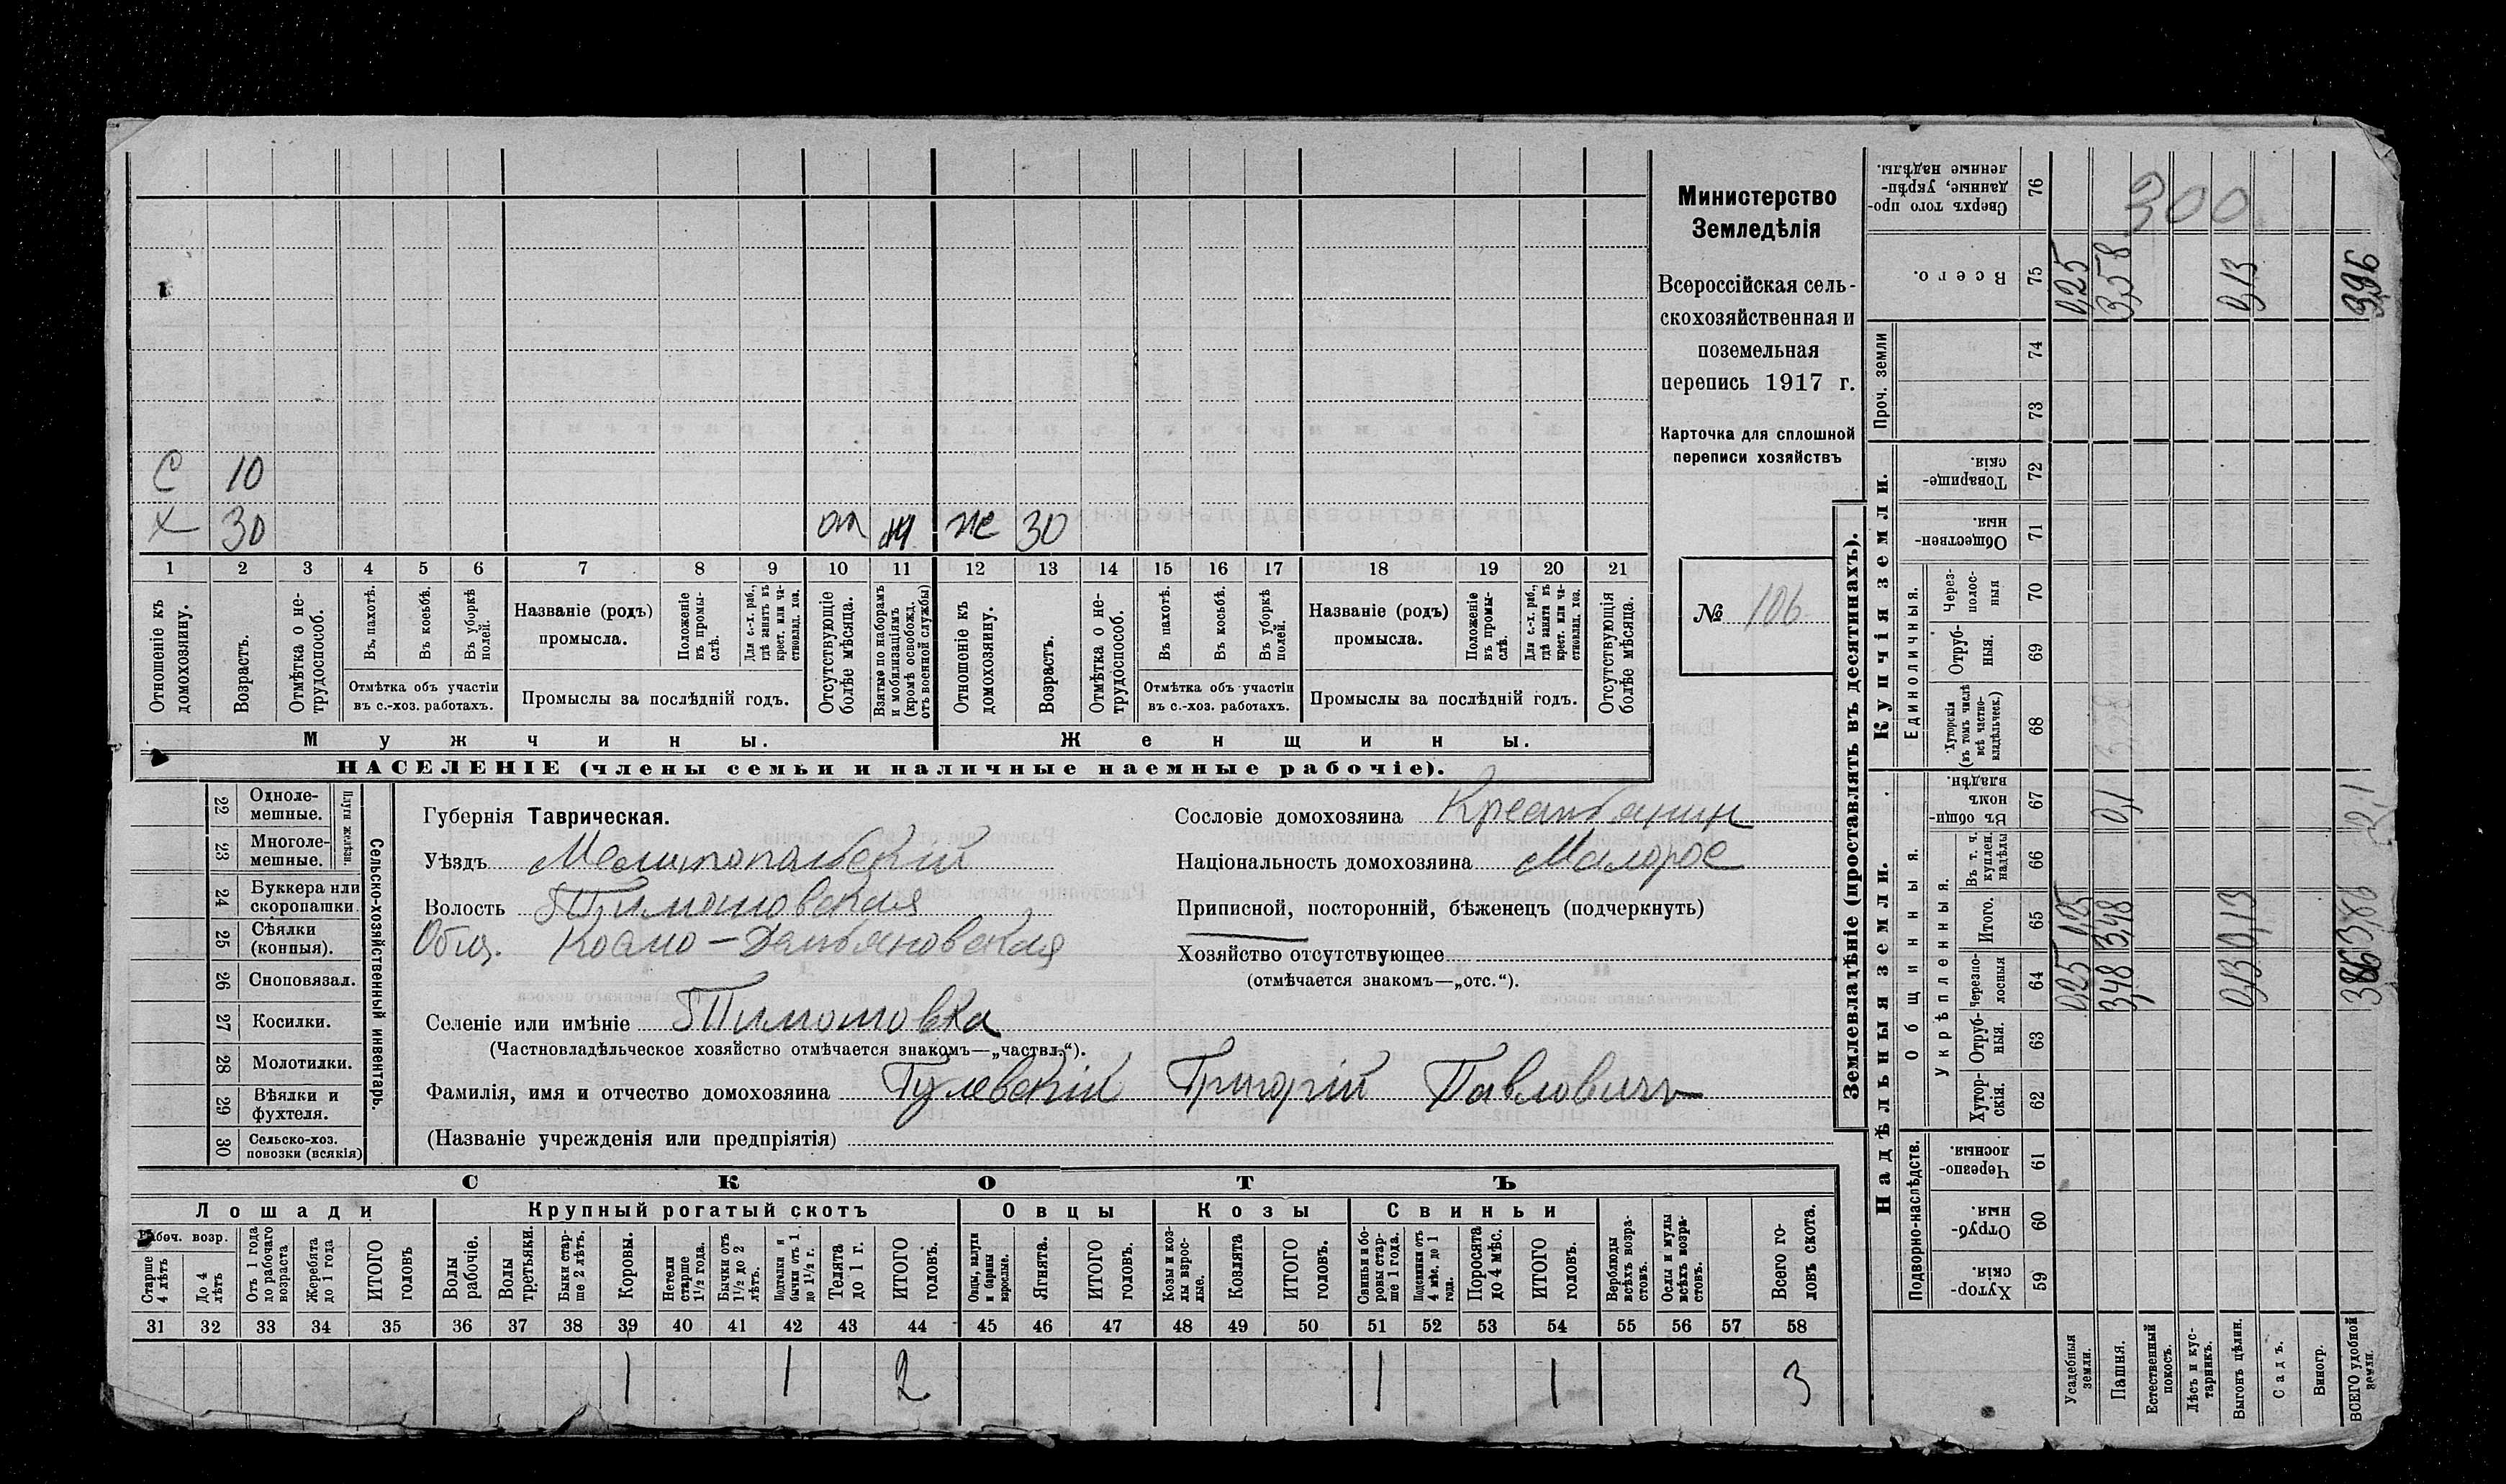 С 10
Х 30 от м же 30
1 2 3 4 5 6 7 8 9 10 11 12 13 14 15 16 17 18 19 20 21
Отношеніе къ домохозяину.
Возрастъ.
Отмѣтка о не-
трудоспособ.
Въ пахотѣ.
Въ косьбѣ.
Въ уборкѣ полей.
Отмѣтка объ участіи
въ с.-хоз. работахъ.
Названіе (родъ)
промысла.
Положеніе
въ промы-
слѣ.
Для с.-х. раб.,
гдѣ занятъ въ
крест. или ча-
стновлад. хоз.
Промыслы за послѣдній годъ.
Отсутствующіе
болѣе мѣсяца.
Взятые по наборамъ
и мобилизаціямъ
(кромѣ освобожд.
отъ военной службы)
Отношеніе къ
домохозяину.
Возрастъ.
Отмѣтка о не-
трудоспособ.
Въ пахотѣ.
Въ косьбѣ.
Въ уборкѣ
полей.
Отмѣтка объ участіи
въ с.-хоз. работахъ.
Названіе (родъ)
промысла.
Положеніе
въ промы-
слѣ.
Для с.-х. раб.,
гдѣ занята въ
крест. или ча-
стновлад. хоз.
Промыслы за послѣдній годъ.
Отсутствующія
болѣе мѣсяца.
Мужчины. Женщины.
НАСЕЛЕНІЕ (члены семьи и наличные наемные рабочіе).
Министерство
Земледѣлія
Всероссійская сель-
скохозяйственная и
поземельная
перепись 1917 г.
Карточка для сплошной
переписи хозяйствъ
№ 106
22 Одноле-
мешные.
23 Многоле-
мешные.
Плуги желѣзн.
24 Буккера или
скоропашки
25 Сѣялки
(конныя).
26 Сноповязал.
27 Косилки.
28 Молотилки.
29 Вѣялки и
фухтеля.
30 Сельско-хоз.
повозки (всякія)
Сельско-хозяйственный инвентарь.
Губернія Таврическая.
Уѣздъ Мелитопольскій
Волость Тимошовская
Общ. Космо-Демьяновская
Селеніе или имѣніе Тимошовка
(Частновладѣльческое хозяйство отмѣчается знакомъ—„частвл.“).
Фамилія, имя и отчество домохозяина Гулевскій Григорій Павловичъ
(Названіе учрежденія или предпріятія)
Сословіе домохозяина Крестьянин
Національность домохозяина Малорос
Приписной, посторонній, бѣженецъ (подчеркнуть)
Хозяйство отсутствующее
(отмѣчается знакомъ—„отс.“).
СКОТЪ
Лошади Крупный рогатый скотъ Овцы Козы Свиньи
Рабоч. возр.
Старше
4 лѣтъ
До 4
лѣтъ
Отъ 1 года
до рабочаго
возраста
Жеребята
до 1 года
ИТОГО
головъ
Волы
рабочіе.
Волы
третьяки.
Быки стар-
ше 2 лѣтъ.
Коровы.
Нетели
старше
1½ года.
Бычки отъ
1½ до 2
лѣтъ.
Подтелки и
бычки отъ 1
до 1½ г.
Телята
до 1 г.
ИТОГО
головъ.
Овцы, валухи
и бараны
взрослые.
Ягнята.
ИТОГО
головъ.
Козы и коз-
лы взрос-
лые.
Козлята
ИТОГО
головъ.
Свиньи и бо-
ровы стар-
ше 1 года.
Подсвинки отъ
4 мѣс. до 1
года.
Поросята
до 4 мѣс.
ИТОГО
головъ.
Верблюды
всѣхъ возра-
стовъ.
Ослы и мулы
всѣхъ возра-
стовъ.
Всего го-
ловъ скота.
31 32 33 34 35 36 37 38 39 40 41 42 43 44 45 46 47 48 49 50 51 52 53 54 55 56 57 58
1 1 2 1 1 3
Землевладѣніе (проставлять въ десятинахъ).
Надѣльныя земли. Купчія земли. Проч. земли
Подворно-наслѣдств.
Общинныя.
Укрѣпленныя.
Единоличныя.
Хутор-
скія. 59
Отруб-
ныя. 60
Черезпо-
лосныя 61
Хутор-
скія. 62
Отруб-
ныя. 63
Черезпо-
лосныя 64
Итого. 65
Въ т. ч.
куплен.
надѣлы 66
Въ общин-
номъ
владѣн. 67
Хуторскія
(въ томъ числѣ
всѣ частно-
владѣльческ.) 68
Отруб-
ныя. 69
Через-
полос-
ныя 70
Обществен-
ныя. 71
Товарище-
скія. 72
73
74
Всего. 75
Сверхъ того про-
данные, укрѣп-
ленные надѣлы. 76
Усадебныя
земли. 0,25 0,25 0,25
Пашня. 3,48 3,48 0,1 3,58
Естественный
покосъ.
Лѣсъ и кус-
тарникъ.
Выгонъ цѣлин. 0,13 0,13 0,13
Садъ.
Виногр.
ВСЕГО удобной
земли. 3,86 3,86 0,1 3,96
300